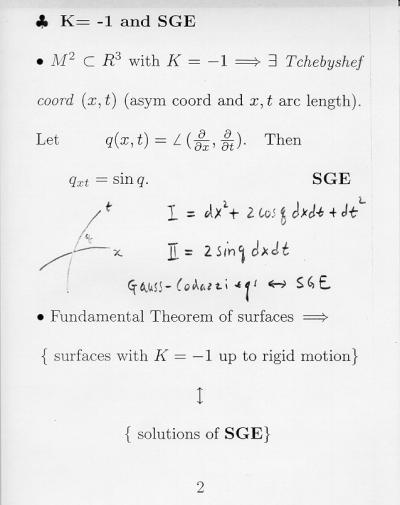 ♣ K= -1 and SGE
• M² ⊂ R³ with K = −1 ⟹ ∃ Tchebyshef
coord (x, t) (asym coord and x, t arc length).
Let q(x, t) = ∠(∂/∂x, ∂/∂t). Then
q_xt = sin q. SGE
t
q
x
I = dx² + 2 cos q dxdt + dt²
II = 2 sin q dxdt
Gauss-Codazzi eqs ↔ SGE
• Fundamental Theorem of surfaces ⟹
{ surfaces with K = −1 up to rigid motion}
↕
{ solutions of SGE}
2